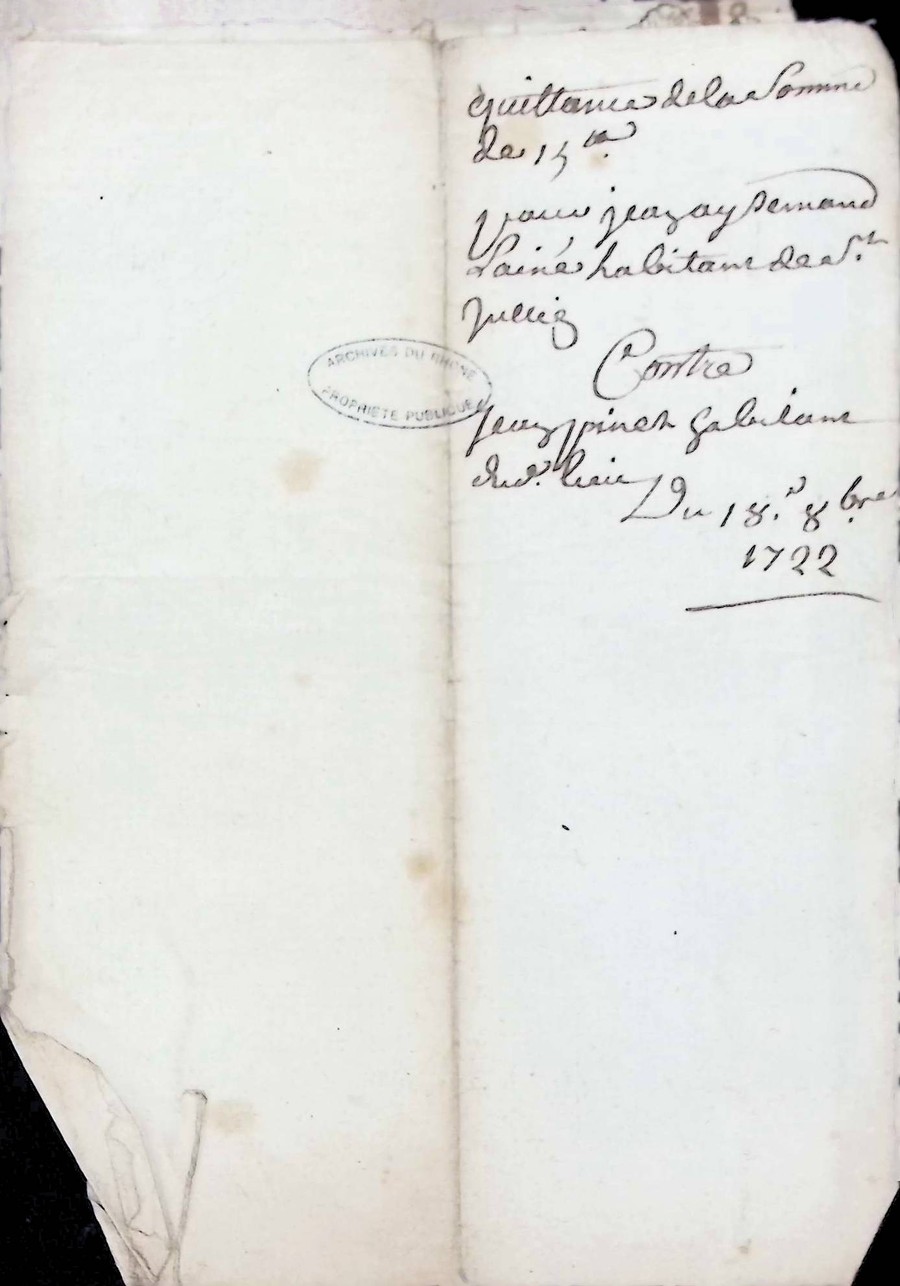 quittance de la Somme
de 15 ᵗᵗ
pour jean
Lainé habitant de St
Jullien
Contre
jean pinet habitant
dud. lieu
Du 18.e 8bre
1722
ARCHIVES DU RHÔNE
PROPRIÉTÉ PUBLIQUE